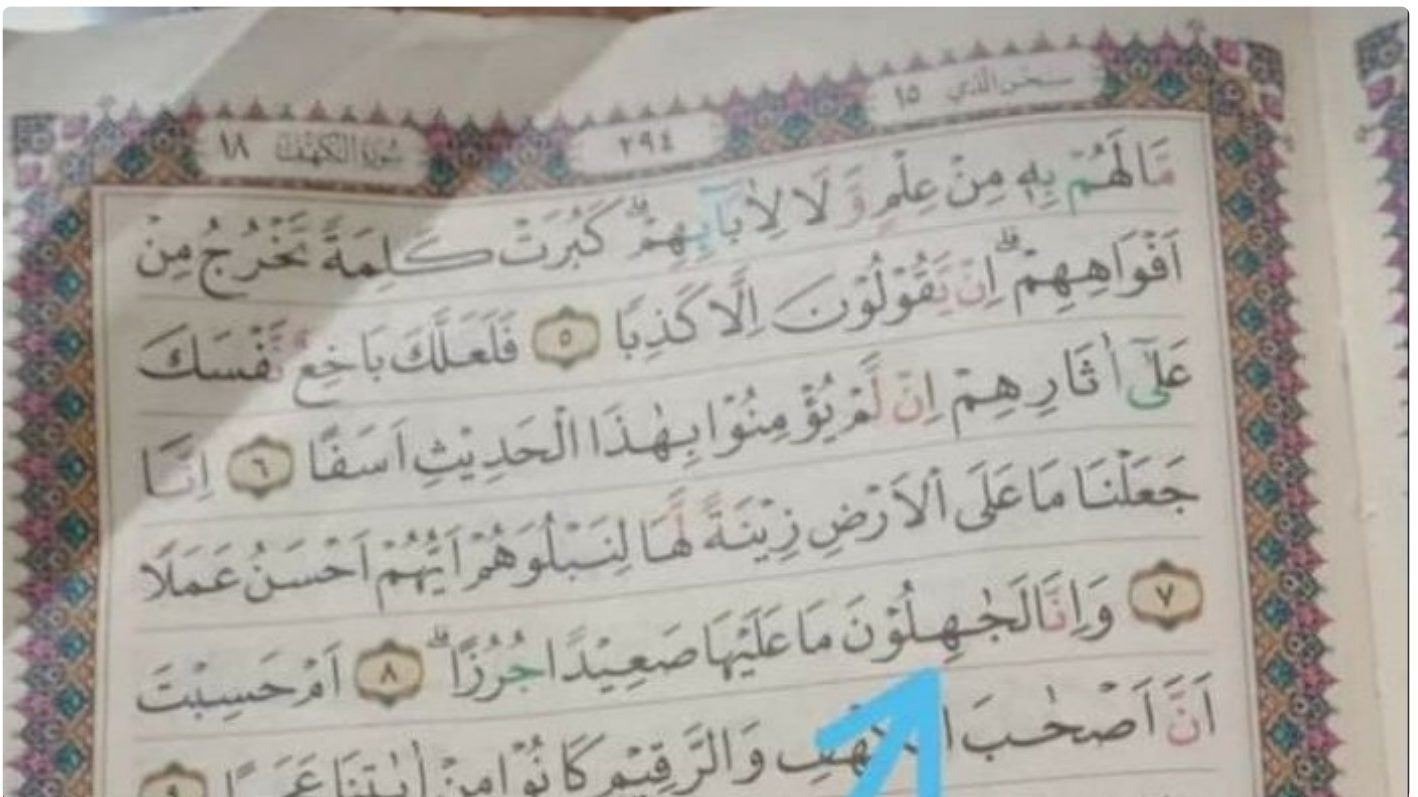 سبحن الذي ١٥ ٢٩٤ سورة الكهف ١٨
مَا لَهُمْ بِهٖ مِنْ عِلْمٍ وَّلَا لِاٰبَآىِٕهِمْۗ كَبُرَتْ كَلِمَةً تَخْرُجُ مِنْ
اَفْوَاهِهِمْۗ اِنْ يَّقُوْلُوْنَ اِلَّا كَذِبًا ٥ فَلَعَلَّكَ بَاخِعٌ نَّفْسَكَ
عَلٰٓى اٰثَارِهِمْ اِنْ لَّمْ يُؤْمِنُوْا بِهٰذَا الْحَدِيْثِ اَسَفًا ٦ اِنَّا
جَعَلْنَا مَا عَلَى الْاَرْضِ زِيْنَةً لَّهَا لِنَبْلُوَهُمْ اَيُّهُمْ اَحْسَنُ عَمَلًا
٧ وَاِنَّا لَجٰهِلُوْنَ مَا عَلَيْهَا صَعِيْدًا جُرُزًاۗ ٨ اَمْ حَسِبْتَ
اَنَّ اَصْحٰبَ وَالرَّقِيْمِ كَانُوْا مِنْ اٰيٰتِنَا عَجَبًا ٩